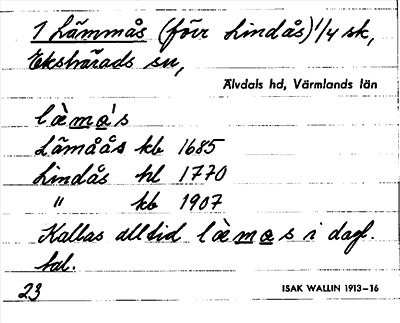 1 Lämmås (förr Lindås) 1/4 sk,
Ekshärads sn,
Älvdals hd, Värmlands län
là̈mạ's
Lämåås kb 1685
Lindås hl 1770
" kb 1907
Kallas alltid là̈mạs i dagl.
tal.
23
ISAK WALLIN 1913-16